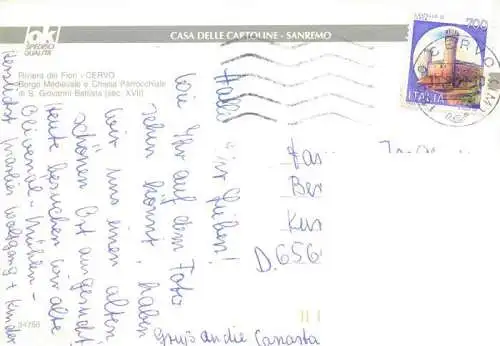 ok
SPEDISCI
QUALITÀ
CASA DELLE CARTOLINE - SANREMO
Riviera dei Fiori - CERVO
Borgo Medievale e Chiesa Parrocchiale
di S. Giovanni Battista (sec. XVII)
700
ITALIA
CERVO
Hallo ihr Lieben!
Wie Ihr auf dem Foto
sehn könnt, haben
wir uns einen alten
schönen Ort ausgesucht
Heute besuchen wir alte
Olivenöl-Mühlen-
herzlichst Marlies Wolfgang + Kinder
Gruß an die Canasta
D.656
34756